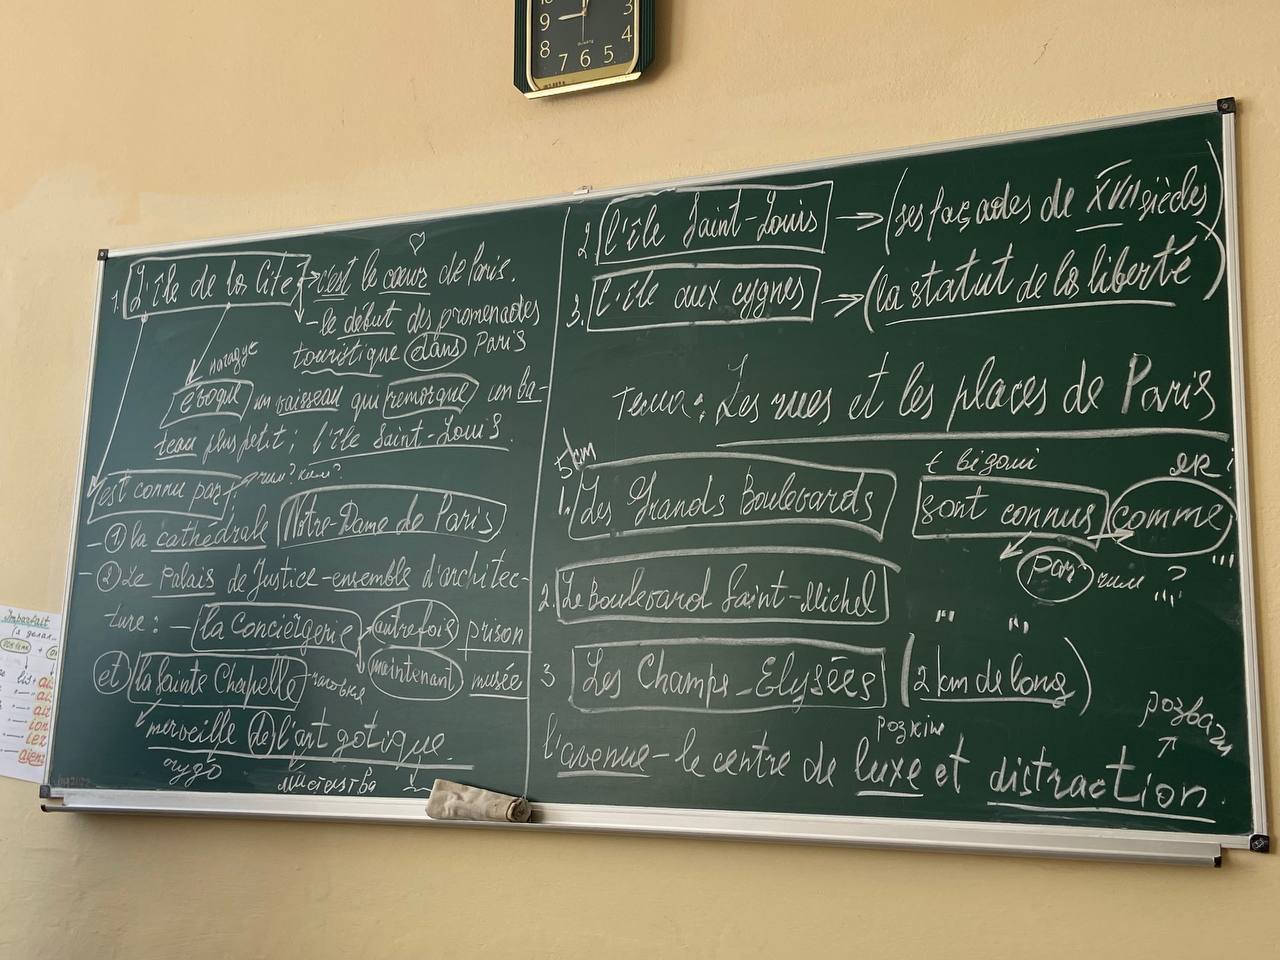 3
9
8
4
7 6 5
QUARTZ
1. L'île de la Cité → c'est le cœur de Paris.
- le début des promenades
touristique dans Paris
нагадує
évoque un vaisseau qui remorque un ba-
teau plus petit; l'île Saint-Louis.
est connu par: чим? ким?
- 1 la cathédrale Notre-Dame de Paris
- 2 Le Palais de Justice - ensemble d'architec-
ture: - la Conciergerie autrefois prison
maintenant musée
et la Sainte Chapelle - часовня
merveille de l'art gotique
чудо
мистецтва
2. l'île Saint-Louis → (ses façades de XVII siècles)
3. l'île aux cygnes → (la statut de la liberté)
Тема: Les rues et les places de Paris
5 km
1. Les Grands Boulevards
є відомі
як?
sont connus comme
par чим?
2. Le Boulevard Saint-Michel " "
3 Les Champs-Elysées (2 km de long)
розкіш
розваги
l'avenue - le centre de luxe et distraction.
Imparfait
ais
ais
ait
ion
iez
aient